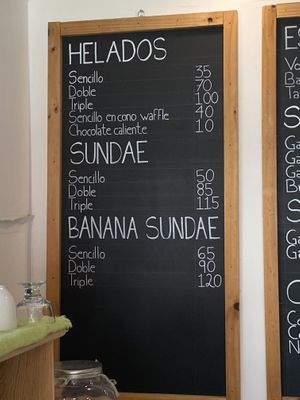 HELADOS
Sencillo 35
Doble 70
Triple 100
Sencillo en cono waffle 40
Chocolate caliente 10
SUNDAE
Sencillo 50
Doble 85
Triple 115
BANANA SUNDAE
Sencillo 65
Doble 90
Triple 120